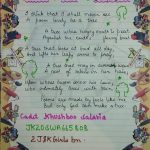 I think that I shall never see
poem lovely as a tree
A tree whose hungry mouth is prest
Against the earth's flowing
A tree that looks at God all day
And lifts her leafy arms to pray
A tree that may in summer
A nest of robins in her hair
Upon whose bosom snow has lain
who intimately lives with rain
Poems are made by fools like me
But only God can make a tree
Cadet Khushboo
2 J&K Girls bn